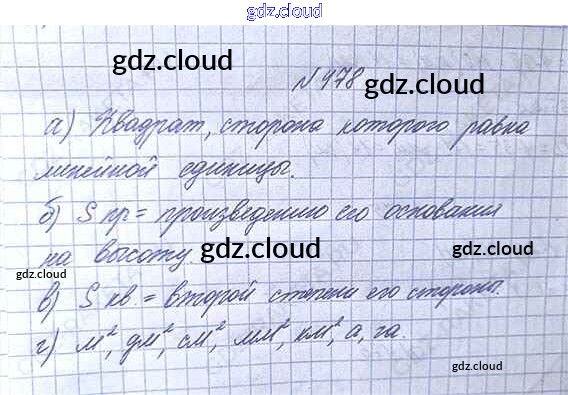 gdz.cloud
gdz.cloud
gdz.cloud
№ 478
а) Квадрат, сторона которого равна
gdz.cloud
линейной единицы.
б) S пр = произведению его основания
на высоту.
gdz.cloud
gdz.cloud
gdz.cloud
в) S кв = второй степени его стороны.
г) м², дм², см², мм², км², а, га.
gdz.cloud